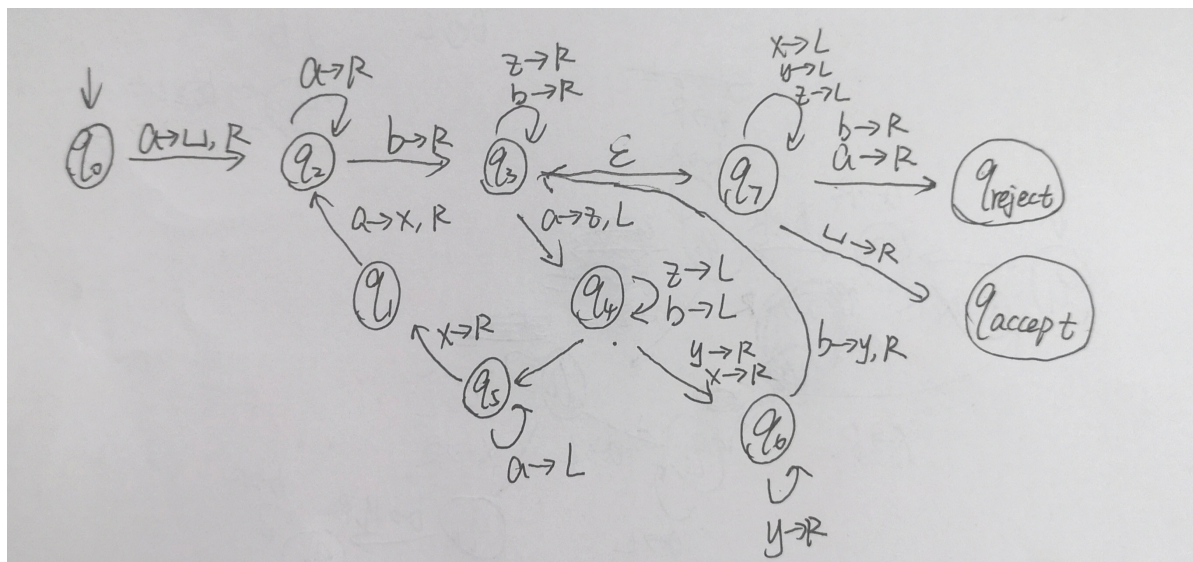 q₀
a→⊔, R
a→R
q₂
b→R
z→R
b→R
q₃
ε
x→L
y→L
z→L
q₇
b→R
a→R
q reject
⊔→R
q accept
a→x, R
q₁
a→z, L
q₄
z→L
b→L
x→R
q₅
a→L
y→R
x→R
b→y, R
q₆
y→R